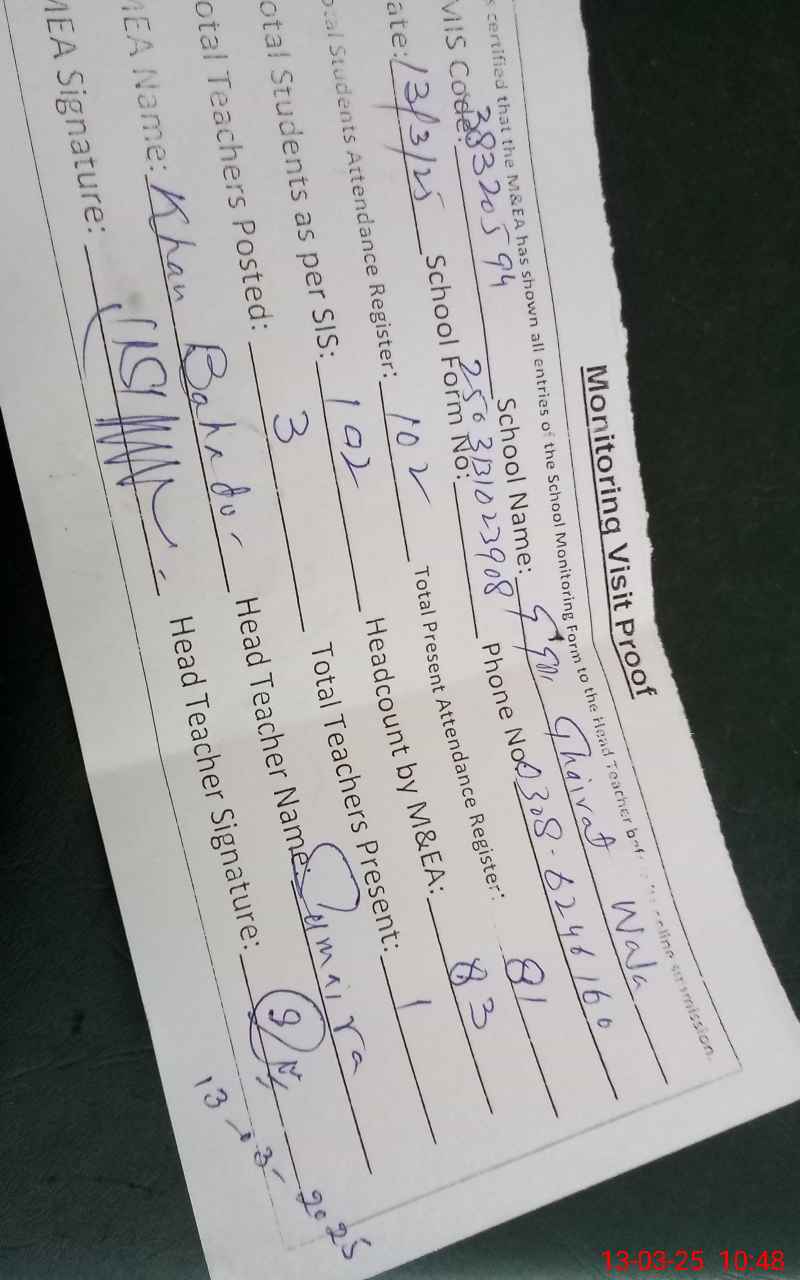 Monitoring Visit Proof
s certified that the M&EA has shown all entries of the School Monitoring Form to the Head Teacher before online submission.
MIS Code: 38320594 School Name: Ghairat Wala
ate: 13/3/25 School Form No: 2503131023908 Phone No: 0308-6246160
otal Students Attendance Register: 102 Total Present Attendance Register: 81
otal Students as per SIS: 102 Headcount by M&EA: 83
otal Teachers Posted: 3 Total Teachers Present: 1
MEA Name: Khan Bahadur Head Teacher Name: Sumaira
MEA Signature: Head Teacher Signature:
13-3-2025
13-03-25 10:48